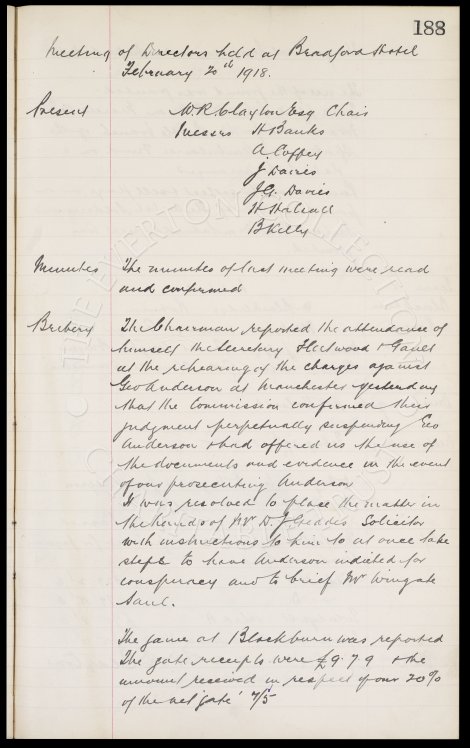 188
Meeting of Directors held at Bradford Hotel
February 20th 1918.
Present W.R. Clayton Esq Chair
Messrs H Banks
A. Coffey
J Davies
J.G. Davies
H Halsall
B Kelly
Minutes The minutes of last meeting were read
and confirmed
Bribery The Chairman reported the attendance of
himself the Secretary Fleetwood & Gault
at the rehearing of the charges against
Geo Anderson at Manchester yesterday
that the Commission confirmed their
judgment perpetually suspending Geo
Anderson & had offered us the use of
the documents and evidence in the event
of our prosecuting Anderson
It was resolved to place the matter in
the hands of Mr D.J Geddes Solicitor
with instructions to him to at once take
steps to have Anderson indicted for
conspiracy and to brief Mr Wingate
Saul.
The game at Blackburn was reported
The gate receipts were £9-7-9 & the
amount received in respect of our 20%
of the net gate 7/5
THE EVERTON COLLECTION